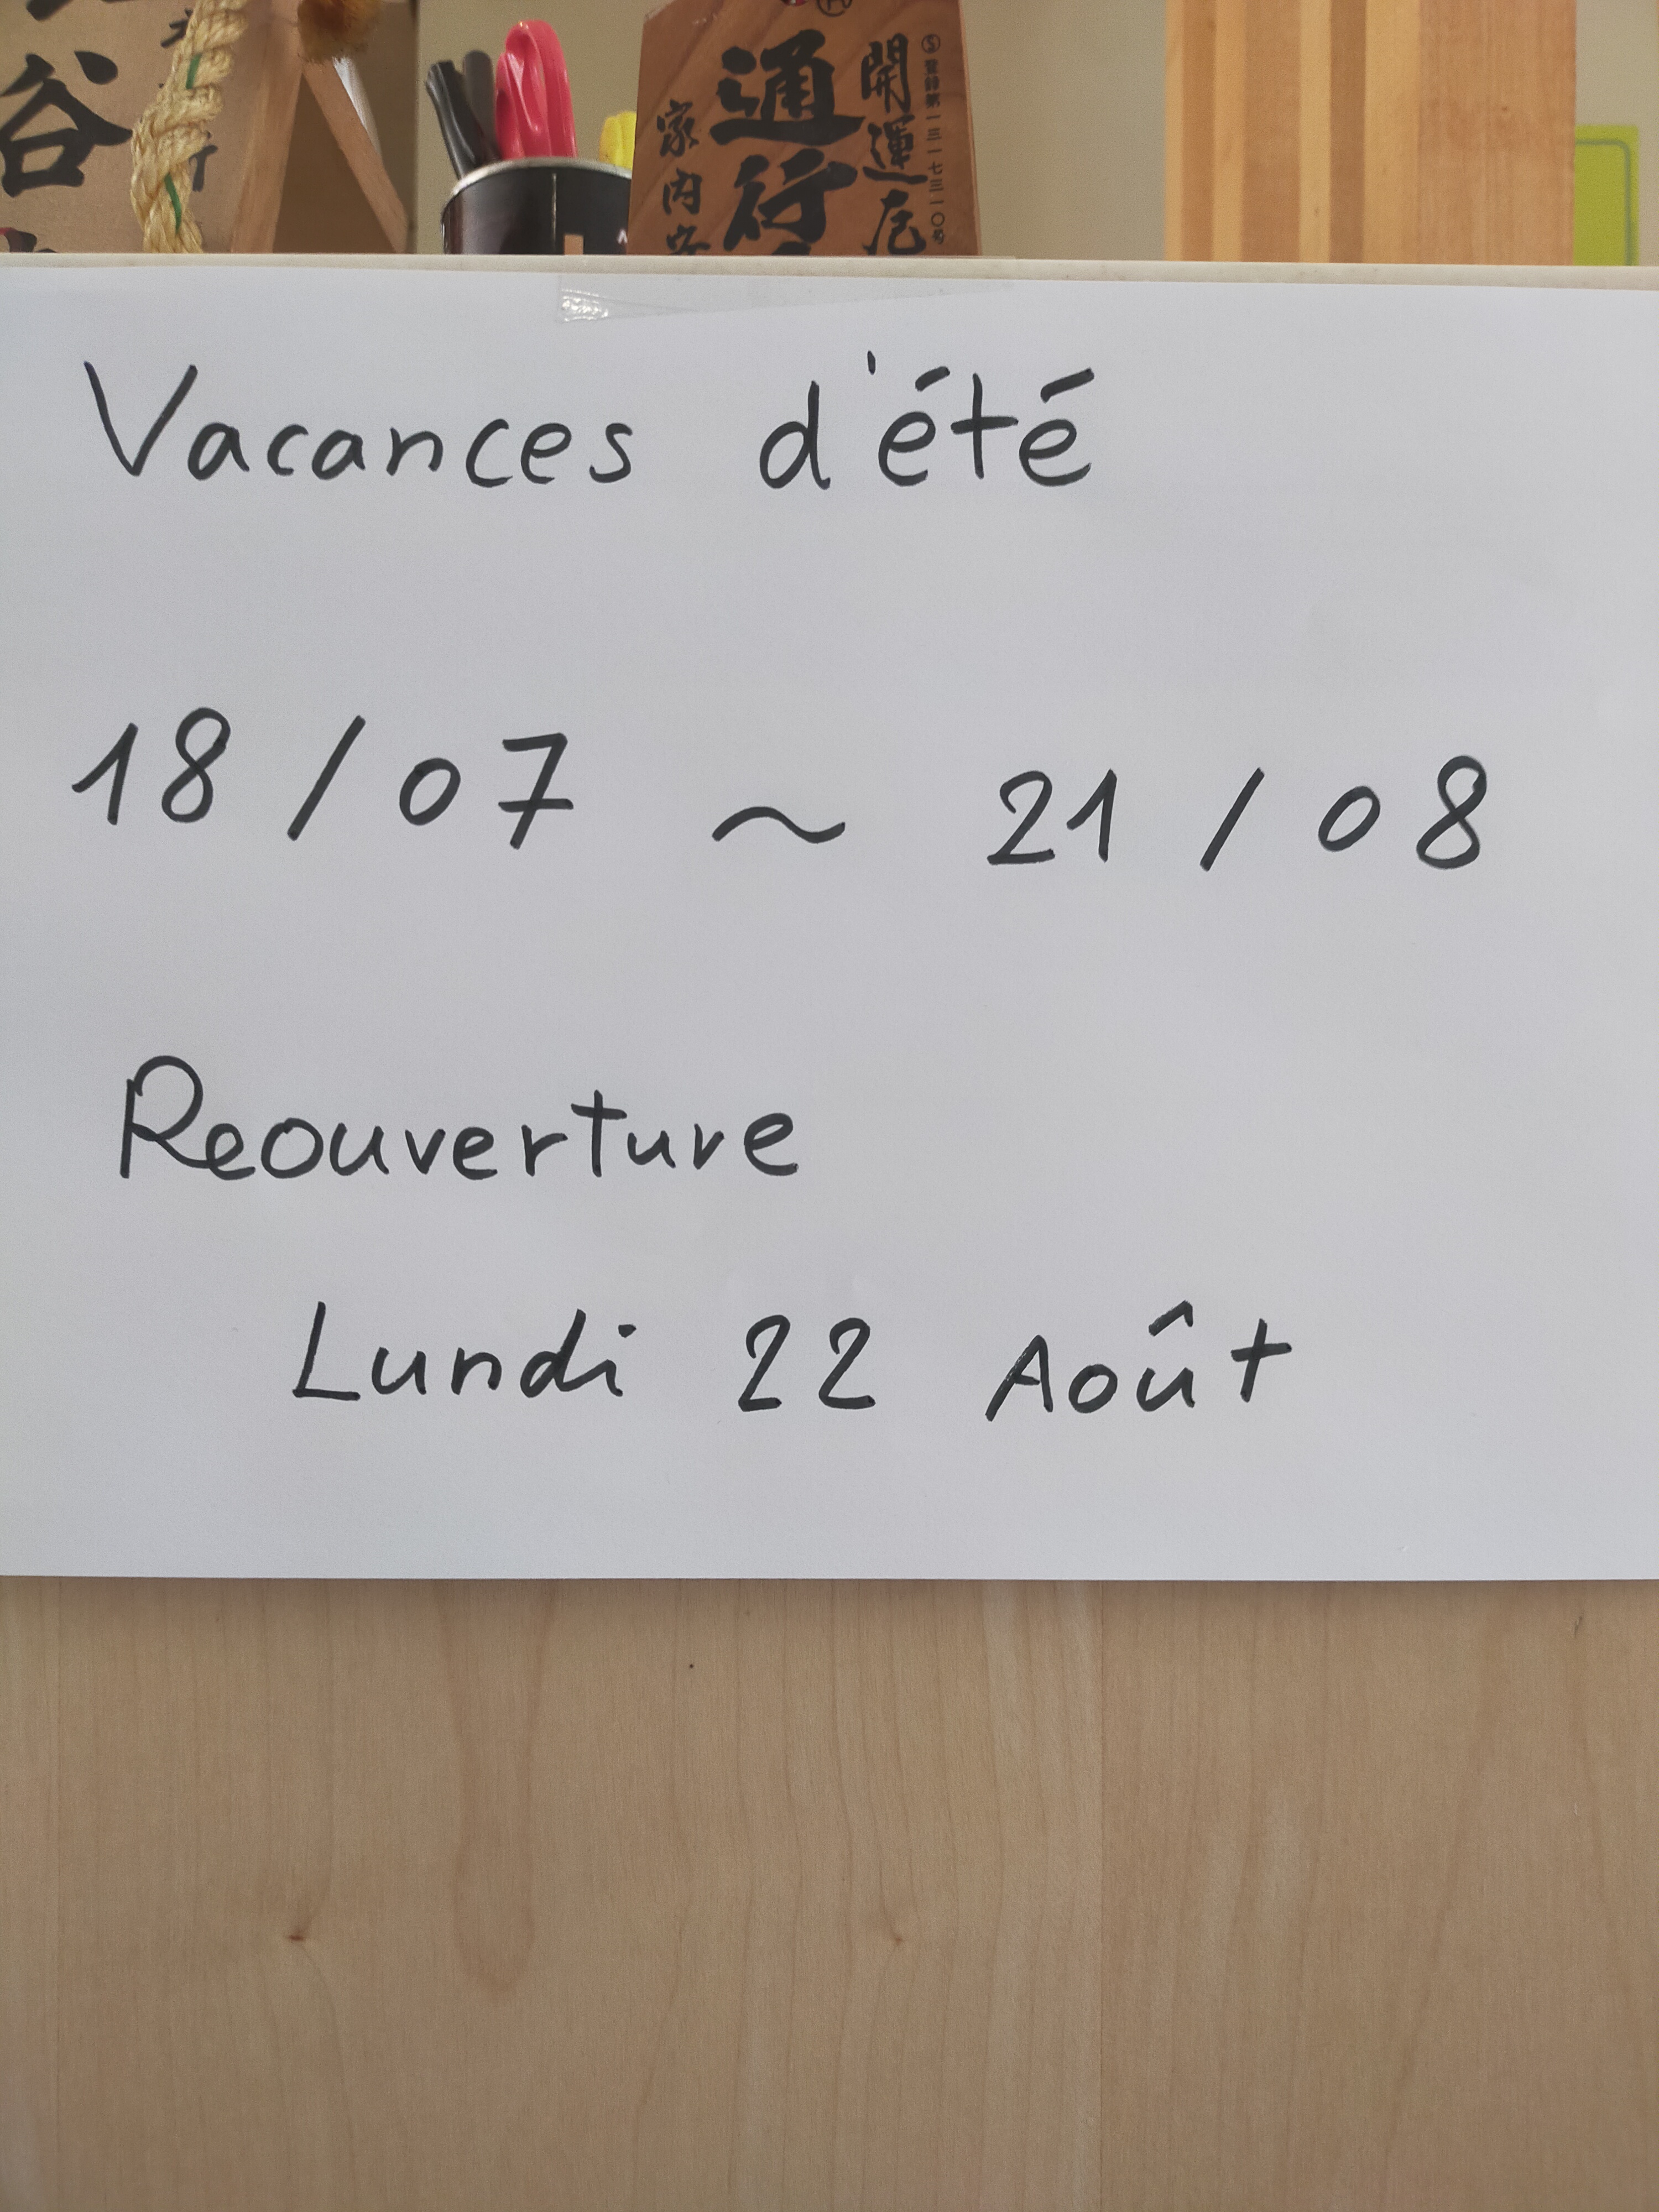 谷
通行
開運
家内安
登録第一三一七三一〇号
Vacances d'été
18/07 ~ 21/08
Reouverture
Lundi 22 Août